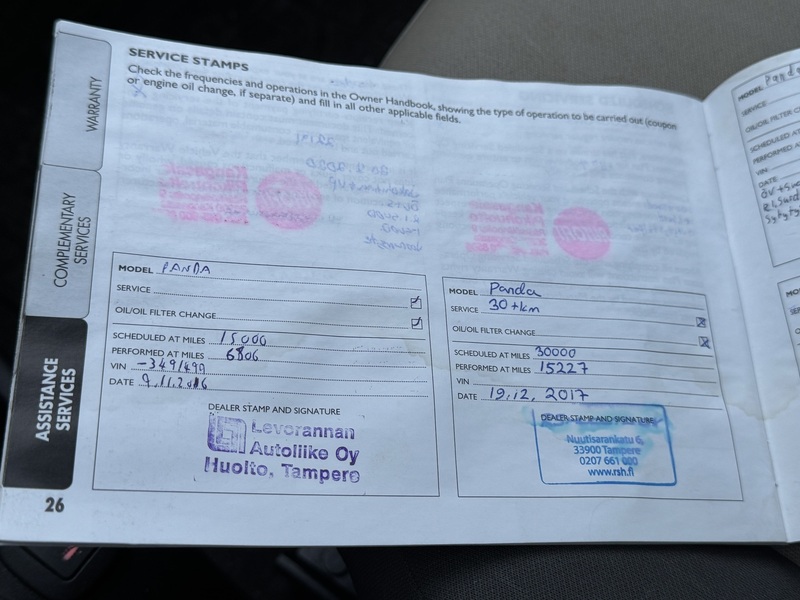 WARRANTY
COMPLEMENTARY
SERVICES
ASSISTANCE
SERVICES
SERVICE STAMPS
Check the frequencies and operations in the Owner Handbook, showing the type of operation to be carried out (coupon
or engine oil change, if separate) and fill in all other applicable fields.
MODEL PANDA
SERVICE
OIL/OIL FILTER CHANGE
SCHEDULED AT MILES 15000
PERFORMED AT MILES 6806
VIN -3491499
DATE 9.11.2016
DEALER STAMP AND SIGNATURE
Levorannan
Autoliike Oy
Huolto, Tampere
MODEL Panda
SERVICE 30 tkm
OIL/OIL FILTER CHANGE
SCHEDULED AT MILES 30000
PERFORMED AT MILES 15227
VIN
DATE 19.12. 2017
DEALER STAMP AND SIGNATURE
Nuutisarankatu 6,
33900 Tampere
0207 661 000
www.rsh.fi
26
MODEL Panda
SERVICE
OIL/OIL FILTER
SCHEDULED AT
PERFORMED AT
VIN
DATE